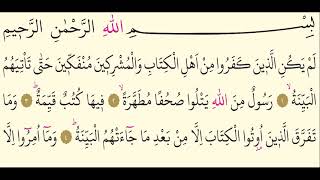 بِسْمِ اللهِ الرَّحْمٰنِ الرَّحِيمِ
لَمْ يَكُنِ الَّذِينَ كَفَرُوا مِنْ اَهْلِ الْكِتَابِ وَالْمُشْرِكِينَ مُنْفَكِّينَ حَتّٰى تَاْتِيَهُمُ
الْبَيِّنَةُ ﴿١﴾ رَسُولٌ مِنَ اللهِ يَتْلُوا صُحُفًا مُطَهَّرَةً ﴿٢﴾ فِيهَا كُتُبٌ قَيِّمَةٌ ﴿٣﴾ وَمَا
تَفَرَّقَ الَّذِينَ اُوتُوا الْكِتَابَ اِلَّا مِنْ بَعْدِ مَا جَٓاءَتْهُمُ الْبَيِّنَةُ ﴿٤﴾ وَمَٓا اُمِرُٓوا اِلَّا